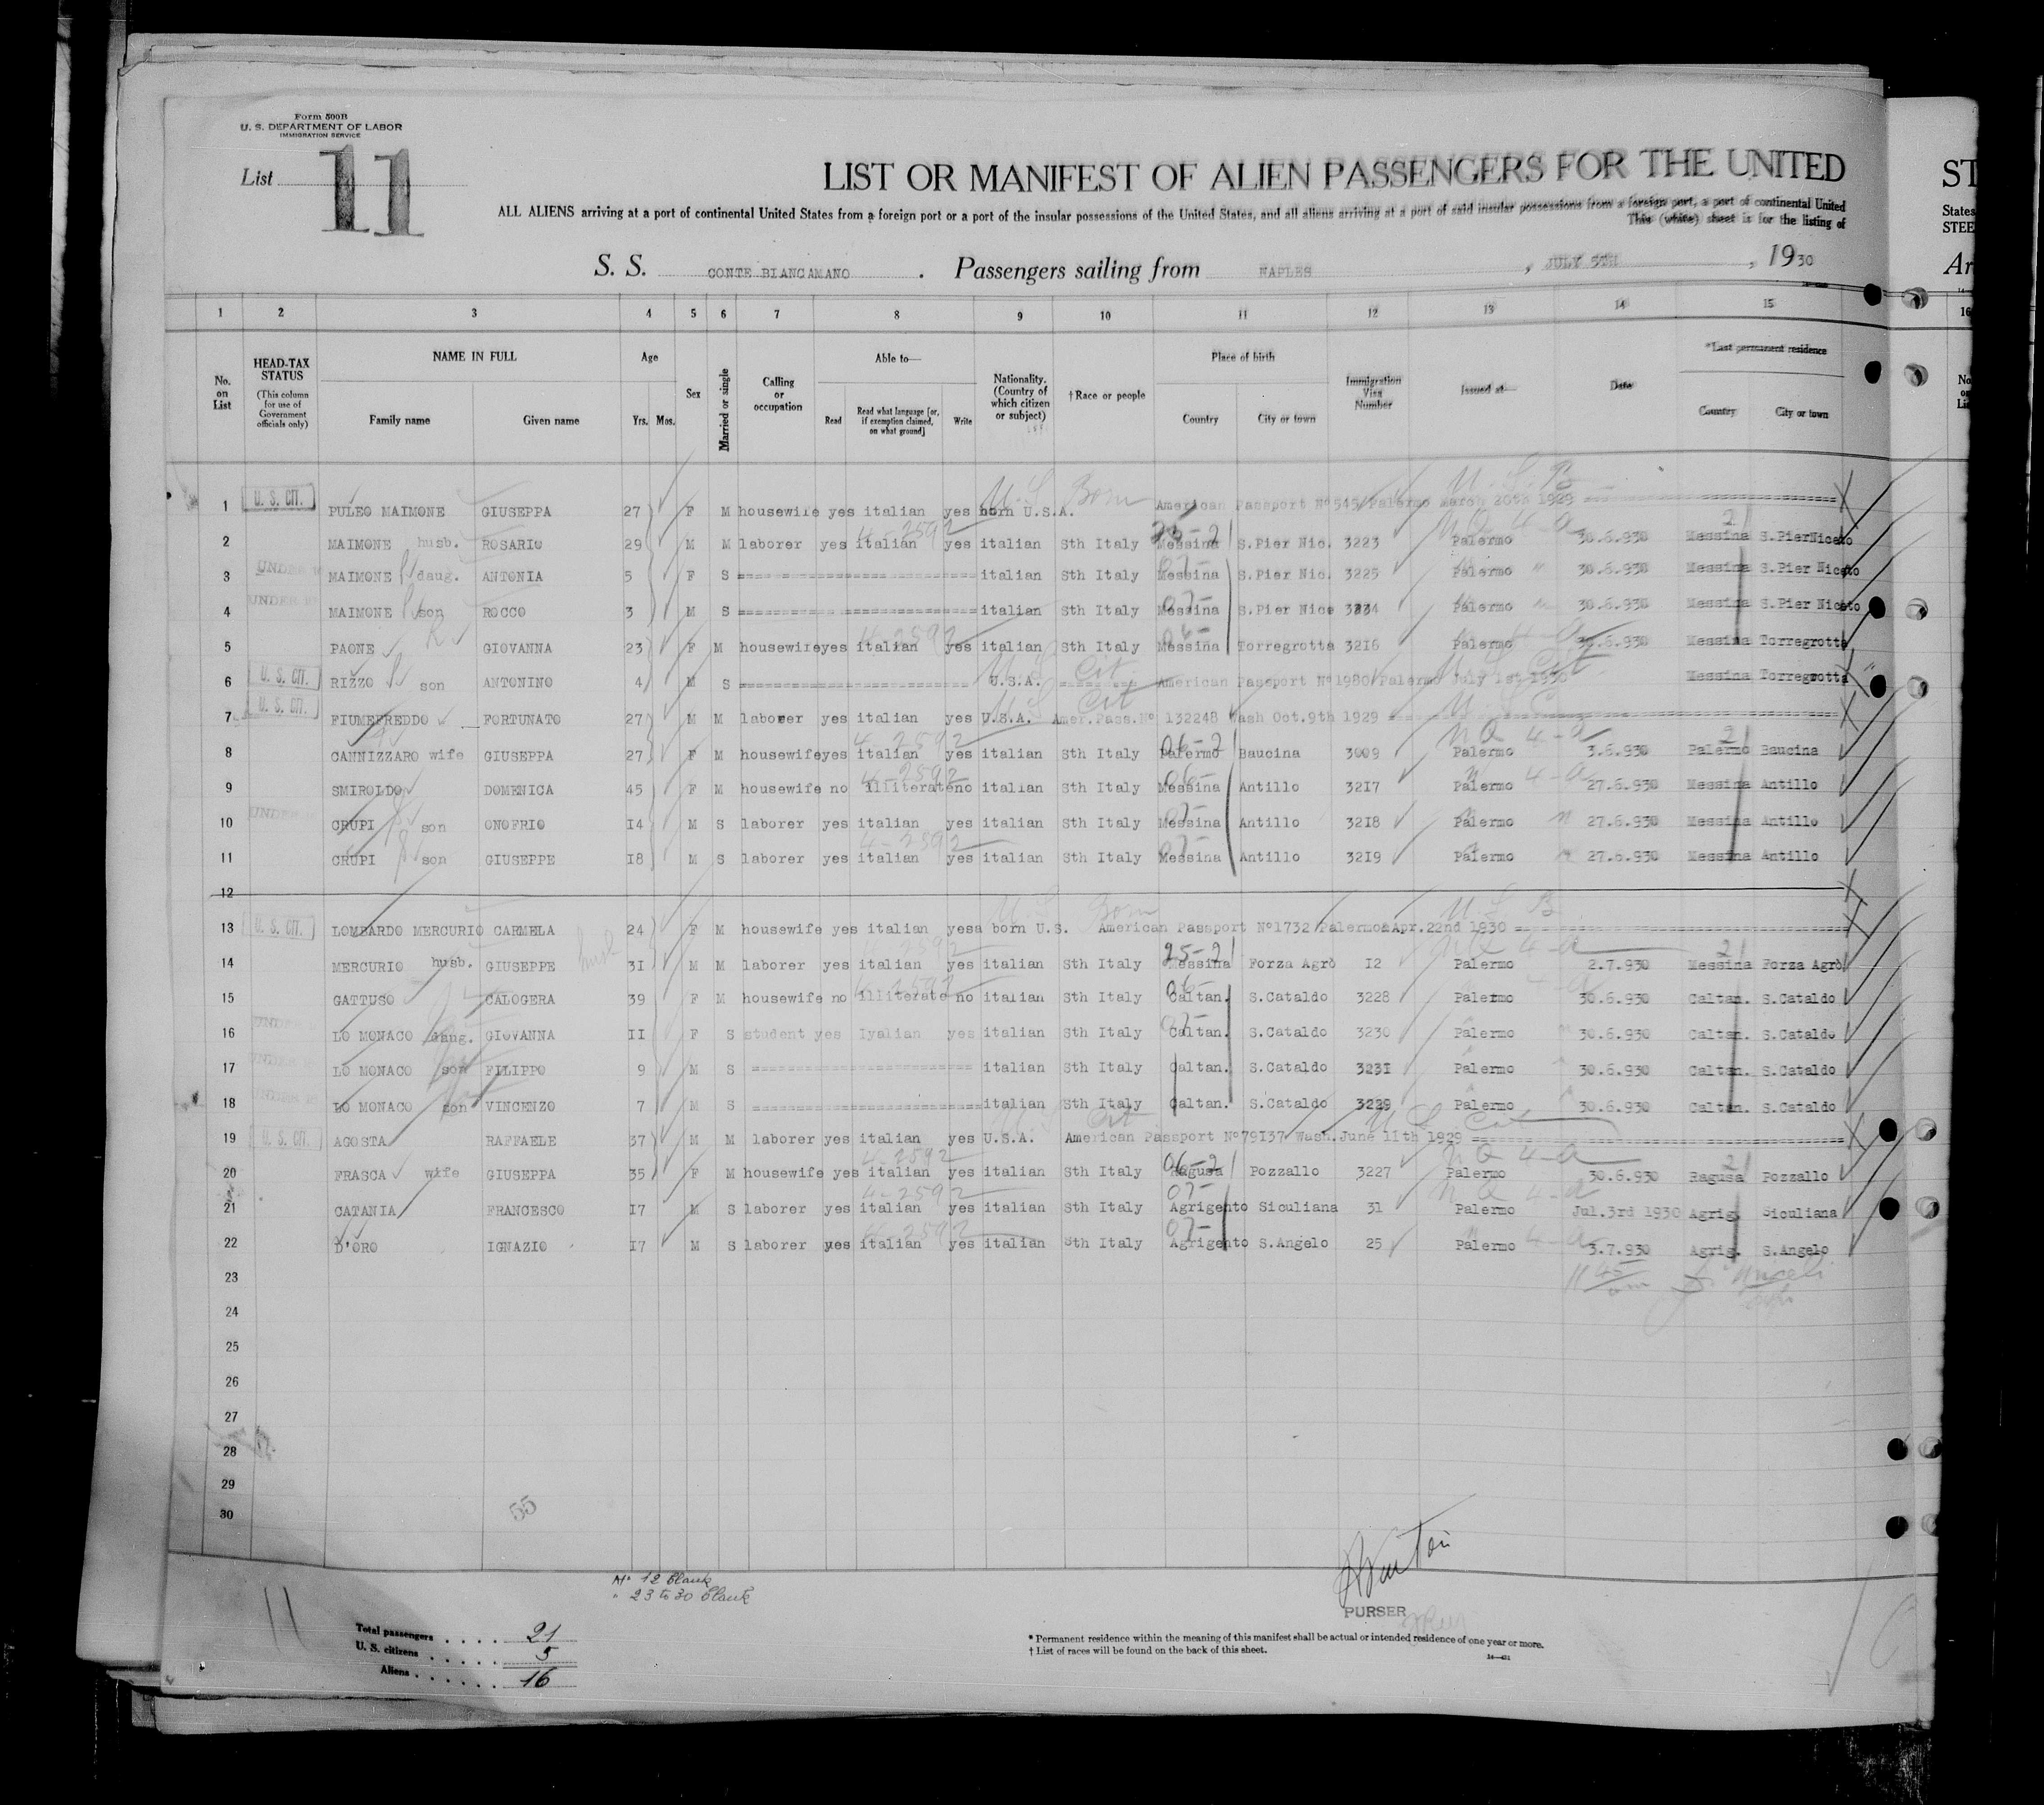 Form 500B
U. S. DEPARTMENT OF LABOR
IMMIGRATION SERVICE
List 11
LIST OR MANIFEST OF ALIEN PASSENGERS FOR THE UNITED
ST
ALL ALIENS arriving at a port of continental United States from a foreign port or a port of the insular possessions of the United States, and all aliens arriving at a port of said insular possessions from a foreign port, a port of continental United
States
This (white) sheet is for the listing of
STEE
S. S. CONTE BIANCAMANO . Passengers sailing from NAPLES , JULY 5TH , 1930
Ar
1 2 3 4 5 6 7 8 9 10 11 12 13 14 15 16
No. on List
HEAD-TAX STATUS
(This column for use of Government officials only)
NAME IN FULL
Family name Given name
Age
Yrs. Mos.
Sex
Married or single
Calling or occupation
Able to—
Read
Read what language [or, if exemption claimed, on what ground]
Write
Nationality. (Country of which citizen or subject)
† Race or people
Place of birth
Country City or town
Immigration Visa Number
Issued at—
Date
*Last permanent residence
Country City or town
1 U. S. CIT. PULEO MAIMONE GIUSEPPA 27 F M housewife yes italian yes born U.S.A. American Passport Nº545 Palermo March 20th 1929
U.S. Born U. S. B
2 MAIMONE husb. ROSARIO 29 M M laborer yes italian yes italian Sth Italy Messina S.Pier Nic. 3223 Palermo 30.6.930 Messina S.PierNiceto
4-2592 25-2 NQ 4-a 2
3 UNDER MAIMONE daug. ANTONIA 5 F S italian Sth Italy Messina S.Pier Nic. 3225 Palermo 30.6.930 Messina S.Pier Niceto
4 UNDER MAIMONE son ROCCO 3 M S italian Sth Italy Messina S.Pier Nice 3224 Palermo 30.6.930 Messina S.Pier Niceto
5 PAONE GIOVANNA 23 F M housewife yes italian yes italian Sth Italy Messina Torregrotta 3216 Palermo 30.6.930 Messina Torregrotta
4-2592
6 U. S. CIT. RIZZO son ANTONINO 4 M S U.S.A. American Passport Nº1980 Palermo July 1st 1930 Messina Torregrotta
U.S. Cit U.S. Cit
7 U. S. CIT. FIUMEFREDDO FORTUNATO 27 M M laborer yes italian yes U.S.A. Amer.Pass.Nº 132248 Wash Oct.9th 1929
U.S. Cit U. S. C
8 CANNIZZARO wife GIUSEPPA 27 F M housewife yes italian yes italian Sth Italy Palermo Baucina 3009 Palermo 3.6.930 Palermo Baucina
4-2592 06-2 NQ 4-a 2
9 SMIROLDO DOMENICA 45 F M housewife no illiterate no italian Sth Italy Messina Antillo 3217 Palermo 27.6.930 Messina Antillo
4-2592 06- 4-a
10 UNDER CRUPI son ONOFRIO 14 M S laborer yes italian yes italian Sth Italy Messina Antillo 3218 Palermo 27.6.930 Messina Antillo
07-
11 CRUPI son GIUSEPPE 18 M S laborer yes italian yes italian Sth Italy Messina Antillo 3219 Palermo 27.6.930 Messina Antillo
4-2592 07-
12
13 U. S. CIT. LOMBARDO MERCURIO CARMELA 24 F M housewife yes italian yesa born U.S. American Passport Nº1732 Palermo Apr.22nd 1930
U.S. Born U. S. B
14 MERCURIO husb. GIUSEPPE 31 M M laborer yes italian yes italian Sth Italy Messina Forza Agrò 12 Palermo 2.7.930 Messina Forza Agrò
husb 25-2 NQ 4-a 2
15 GATTUSO CALOGERA 39 F M housewife no illiterate no italian Sth Italy Caltan. S.Cataldo 3228 Palermo 30.6.930 Caltan. S.Cataldo
16 UNDER LO MONACO daug. GIOVANNA 11 F S student yes Iyalian yes italian Sth Italy Caltan. S.Cataldo 3230 Palermo 30.6.930 Caltan. S.Cataldo
17 UNDER LO MONACO son FILIPPO 9 M S italian Sth Italy Caltan. S.Cataldo 3231 Palermo 30.6.930 Caltan. S.Cataldo
18 UNDER LO MONACO son VINCENZO 7 M S italian Sth Italy Caltan. S.Cataldo 3229 Palermo 30.6.930 Caltan. S.Cataldo
19 U. S. CIT. AGOSTA RAFFAELE 37 M M laborer yes italian yes U.S.A. American Passport Nº79137 Wash.June 11th 1929
U.S. Cit U S Cit
20 FRASCA wife GIUSEPPA 35 F M housewife yes italian yes italian Sth Italy Ragusa Pozzallo 3227 Palermo 30.6.930 Ragusa Pozzallo
4-2592 06-2 NQ 4-a 2
21 CATANIA FRANCESCO 17 M S laborer yes italian yes italian Sth Italy Agrigento Siculiana 31 Palermo Jul.3rd 1930 Agrig. Siculiana
4-2592 07- NQ 4-a
22 D'ORO IGNAZIO 17 M S laborer yes italian yes italian Sth Italy Agrigento S.Angelo 25 Palermo 3.7.930 Agrig. S.Angelo
4-2592 07- 4-a
23
24
25
26
27
28
29
30
55
Nº 12 blank
" 23 to 30 blank
11
Total passengers . . . . 21
U. S. citizens . . . . . 5
Aliens . . . . . . 16
PURSER
* Permanent residence within the meaning of this manifest shall be actual or intended residence of one year or more.
† List of races will be found on the back of this sheet.